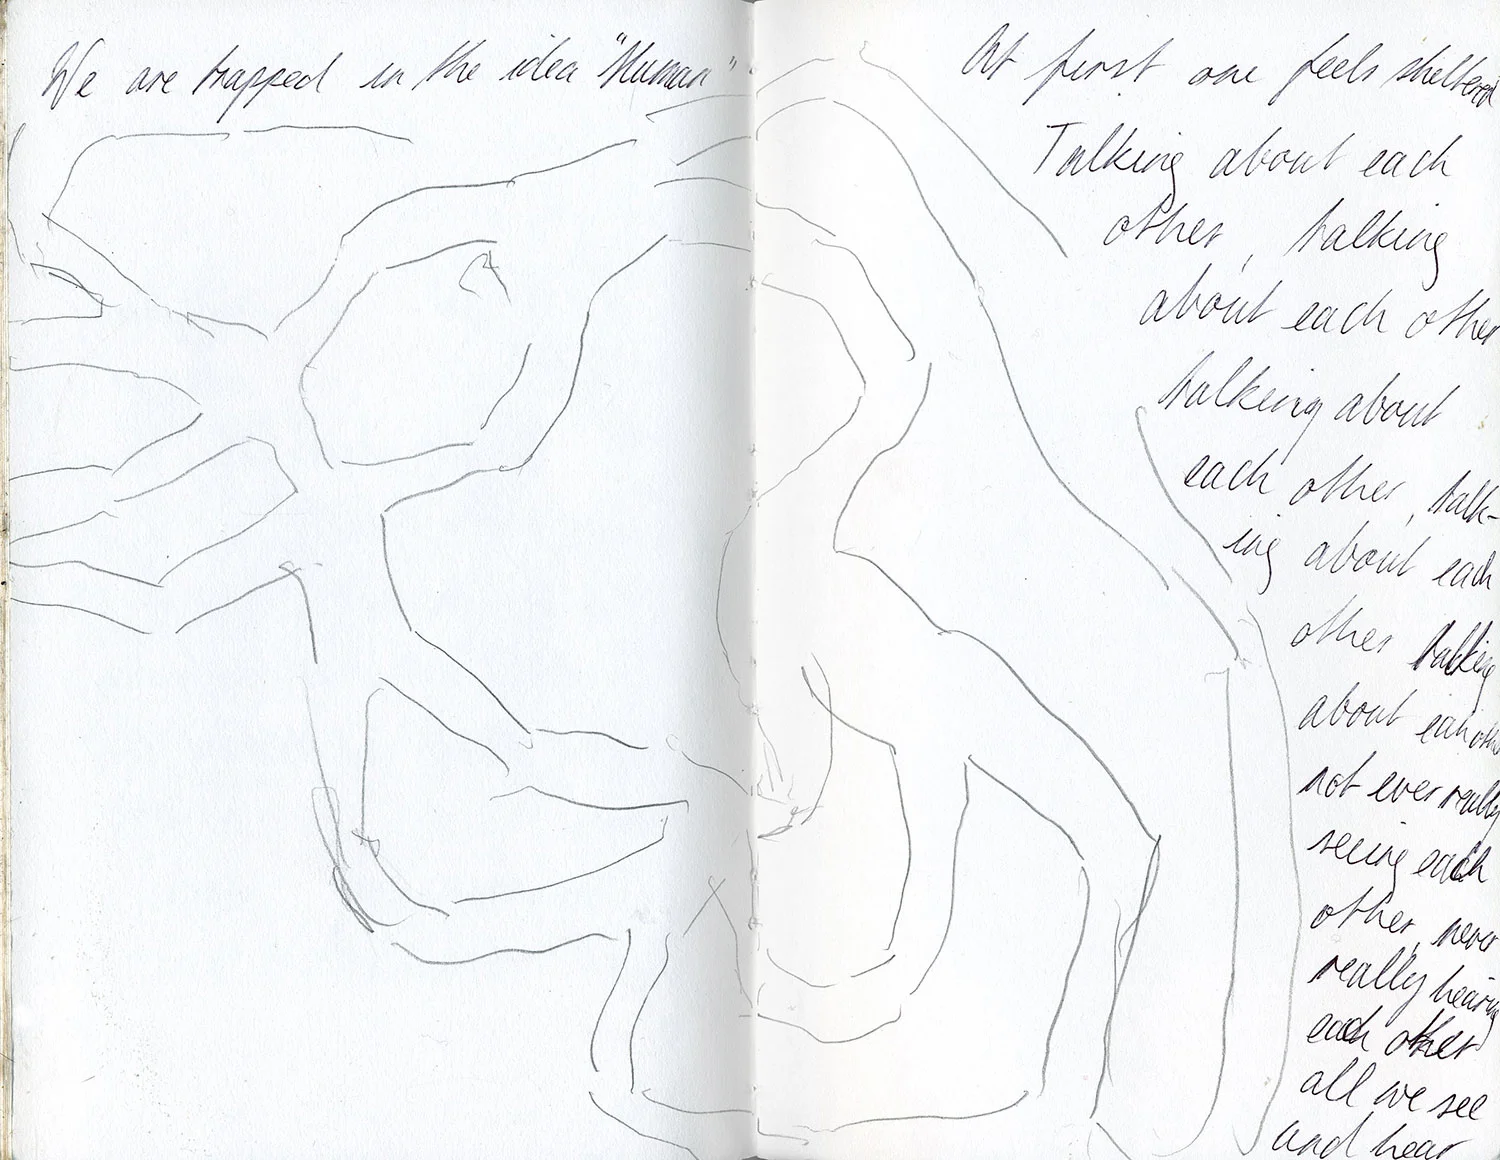 We are trapped in the idea "Human"
At first one feels sheltered
Talking about each
other, talking
about each other
talking about
each other, talk-
ing about each
other talking
about each other
not ever really
seeing each
other, never
really hearing
each other
all we see
and hear